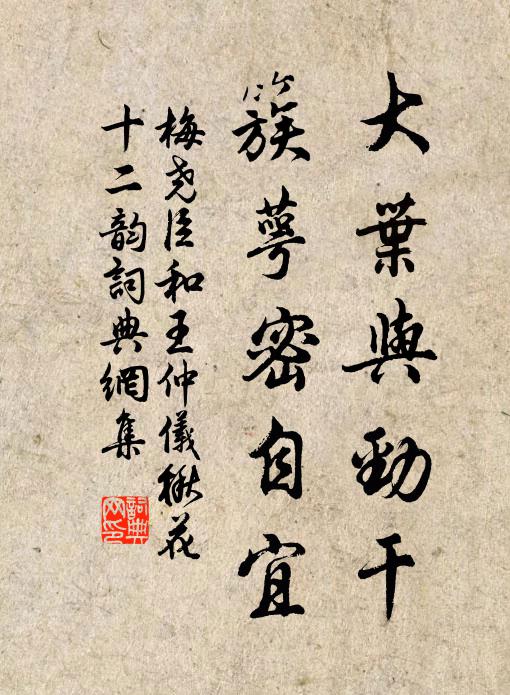 大葉與勁干
簇萼密自宜
梅尧臣和王仲儀楸花
十二韵詞典網集
詞典网印